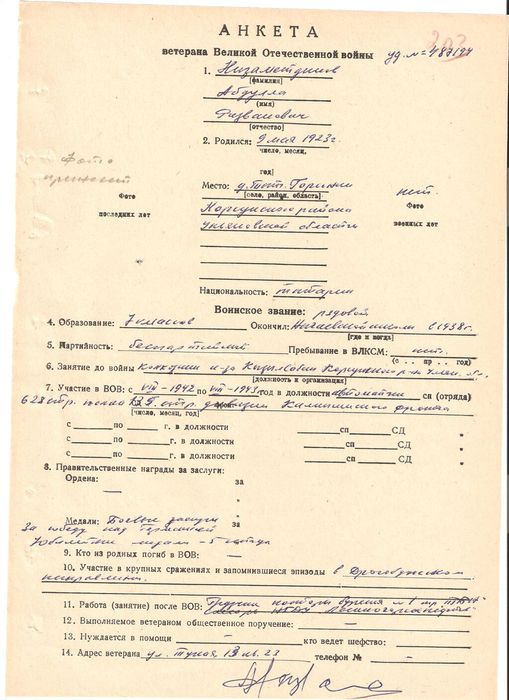 АНКЕТА
ветерана Великой Отечественной войны уд. №
1. Низаметдинов
[фамилия]
Абдулла
(имя)
Разванович
[отчество]
2. Родился: 9 мая 1923 г.
число, месяц,
год)
Фото
Фото
последних лет
Место: д. Тат. Горенки
[село, район, область]
нет.
Фото
военных лет
Карсунского района
Ульяновской области
Национальность: татарин
Воинское звание: рядовой
4. Образование: 7 классов Окончил: школы с 1938 г.
[где и когда]
5. Партийность: беспартийный Пребывание в ВЛКСМ: нет.
(с .. пр . год)
6. Занятие до войны Колхозник к-за Карсунского р-на Ульян.
[должность и организация]
7. Участие в ВОВ: с VIII-1942 по VIII-1943 год в должности автоматчик сп (отряда)
628 стр. стр. дивизии Калининского фронта
(число, месяц, год)
с по г. в должности сп СД "
с по г. в должности сп СД "
с по г. в должности сп СД "
8. Правительственные награды за заслуги:
Ордена: за
— "
Медали: Боевые заслуги за
За победу над Германией "
Юбилейные медали - 5
9. Кто из родных погиб в ВОВ: —
10. Участие в крупных сражениях и запомнившиеся эпизоды в
направлении.
11. Работа (занятие) после ВОВ: конторы бурения №1
12. Выполняемое ветераном общественное поручение: —
13. Нуждается в помощи — кто ведет шефство:
14. Адрес ветерана ул. Тукая 19 кв. 23 телефон № —